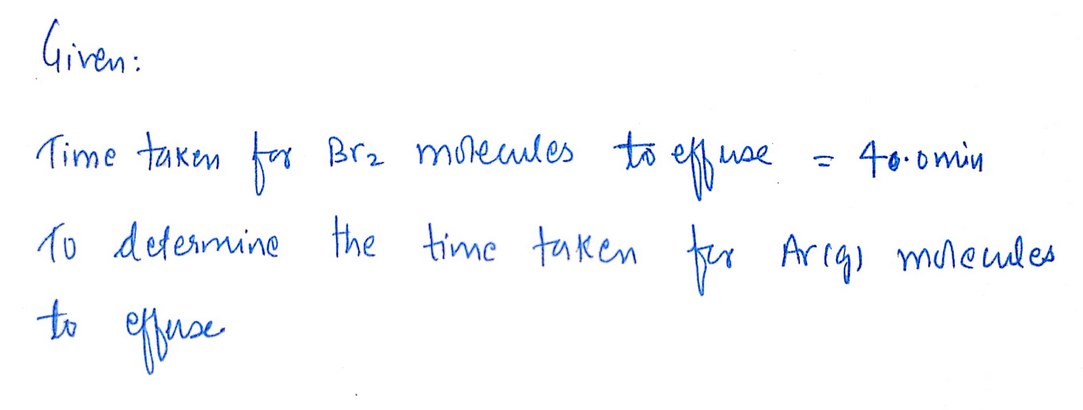 Given:
Time taken for Br2 molecules to effuse = 40.0min
To determine the time taken for Ar(g) molecules
to effuse